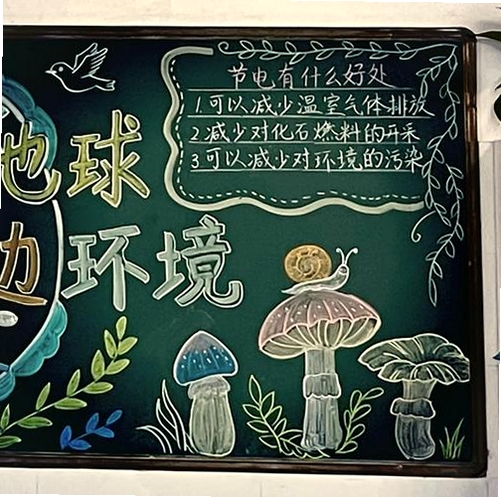 地球
边环境
节电有什么好处
1可以减少温室气体排放
2减少对化石燃料的开采
3可以减少对环境的污染